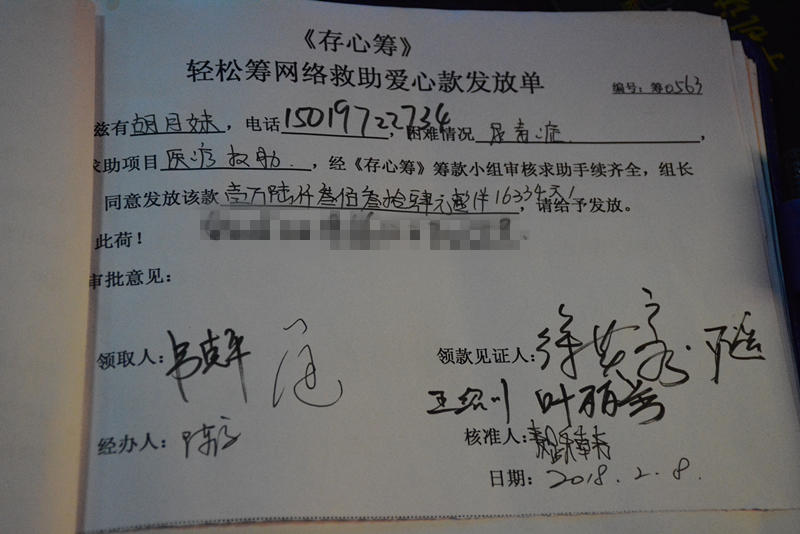 《存心筹》
轻松筹网络救助爱心款发放单
编号：筹0563
兹有胡月妹，电话15019722734，困难情况 尿毒症，
求助项目医疗救助，经《存心筹》筹款小组审核求助手续齐全，组长
同意发放该款壹万陆仟叁佰叁拾肆元整 16334元，请给予发放。
此荷！
审批意见：
领取人：
领款见证人：
叶丽芳
经办人：
核准人：
日期：2018.2.8.